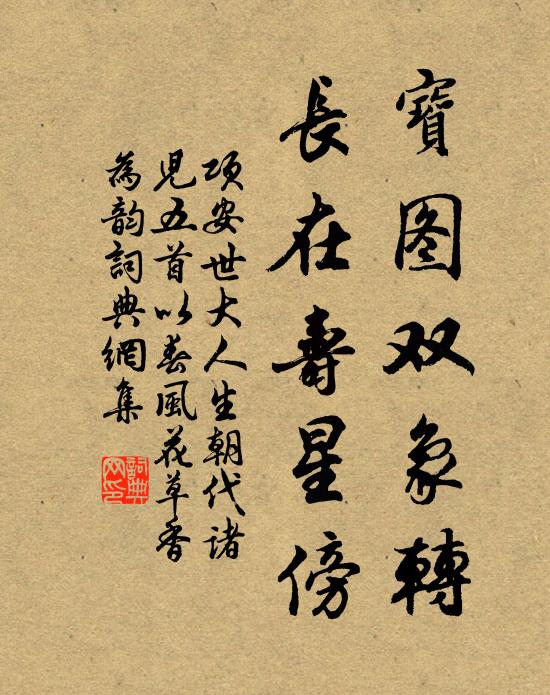 寶图双象轉
長在壽星傍
项安世大人生朝代诸
児五首以春風花草香
為韵詞典網集
詞典网印